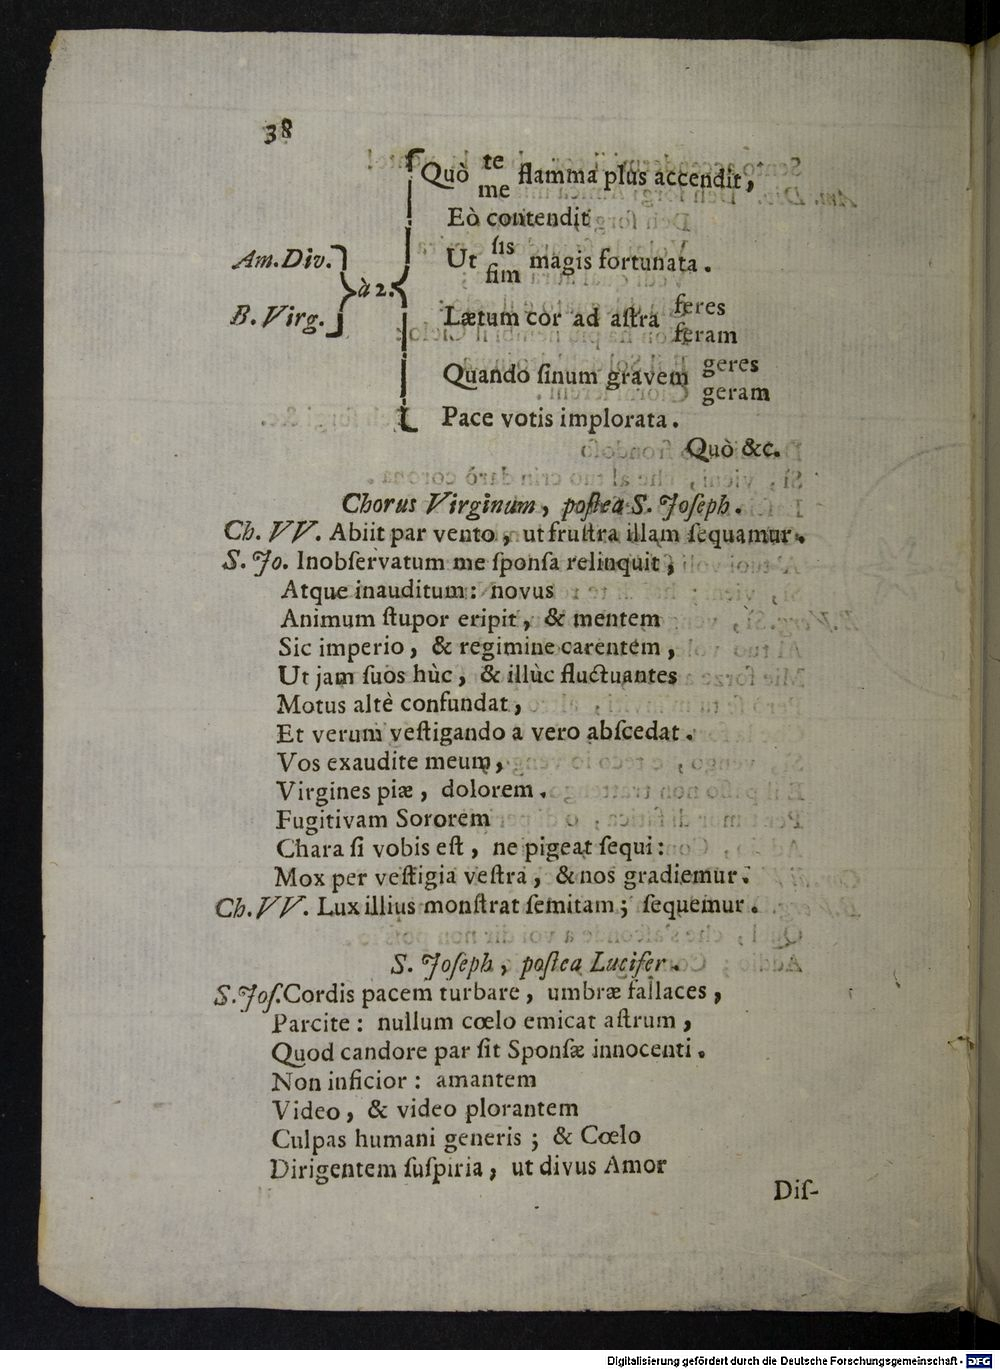 38
Quò te me flamma plus accendit,
Eò contendit
Am. Div. Ut sis sim magis fortunata.
à 2.
B. Virg. Lætum cor ad aſtra feres feram
Quando ſinum gravem geres geram
Pace votis implorata.
Quò &c.
Chorus Virginum, poſtea S. Joſeph.
Ch. VV. Abiit par vento, ut fruſtra illam ſequamur.
S. Jo. Inobſervatum me ſponſa relinquit,
Atque inauditum: novus
Animum ſtupor eripit, & mentem
Sic imperio, & regimine carentem,
Ut jam ſuos hùc, & illùc fluctuantes
Motus altè confundat,
Et verum veſtigando a vero abſcedat.
Vos exaudite meum,
Virgines piæ, dolorem.
Fugitivam Sororem
Chara ſi vobis eſt, ne pigeat ſequi:
Mox per veſtigia veſtra, & nos gradiemur.
Ch. VV. Lux illius monſtrat ſemitam; ſequemur.
S. Joſeph, poſtea Lucifer.
S. Joſ. Cordis pacem turbare, umbræ fallaces,
Parcite: nullum cœlo emicat aſtrum,
Quod candore par ſit Sponſæ innocenti.
Non inficior: amantem
Video, & video plorantem
Culpas humani generis; & Cœlo
Dirigentem ſuſpiria, ut divus Amor
Diſ-
Digitalisierung gefördert durch die Deutsche Forschungsgemeinschaft - DFG